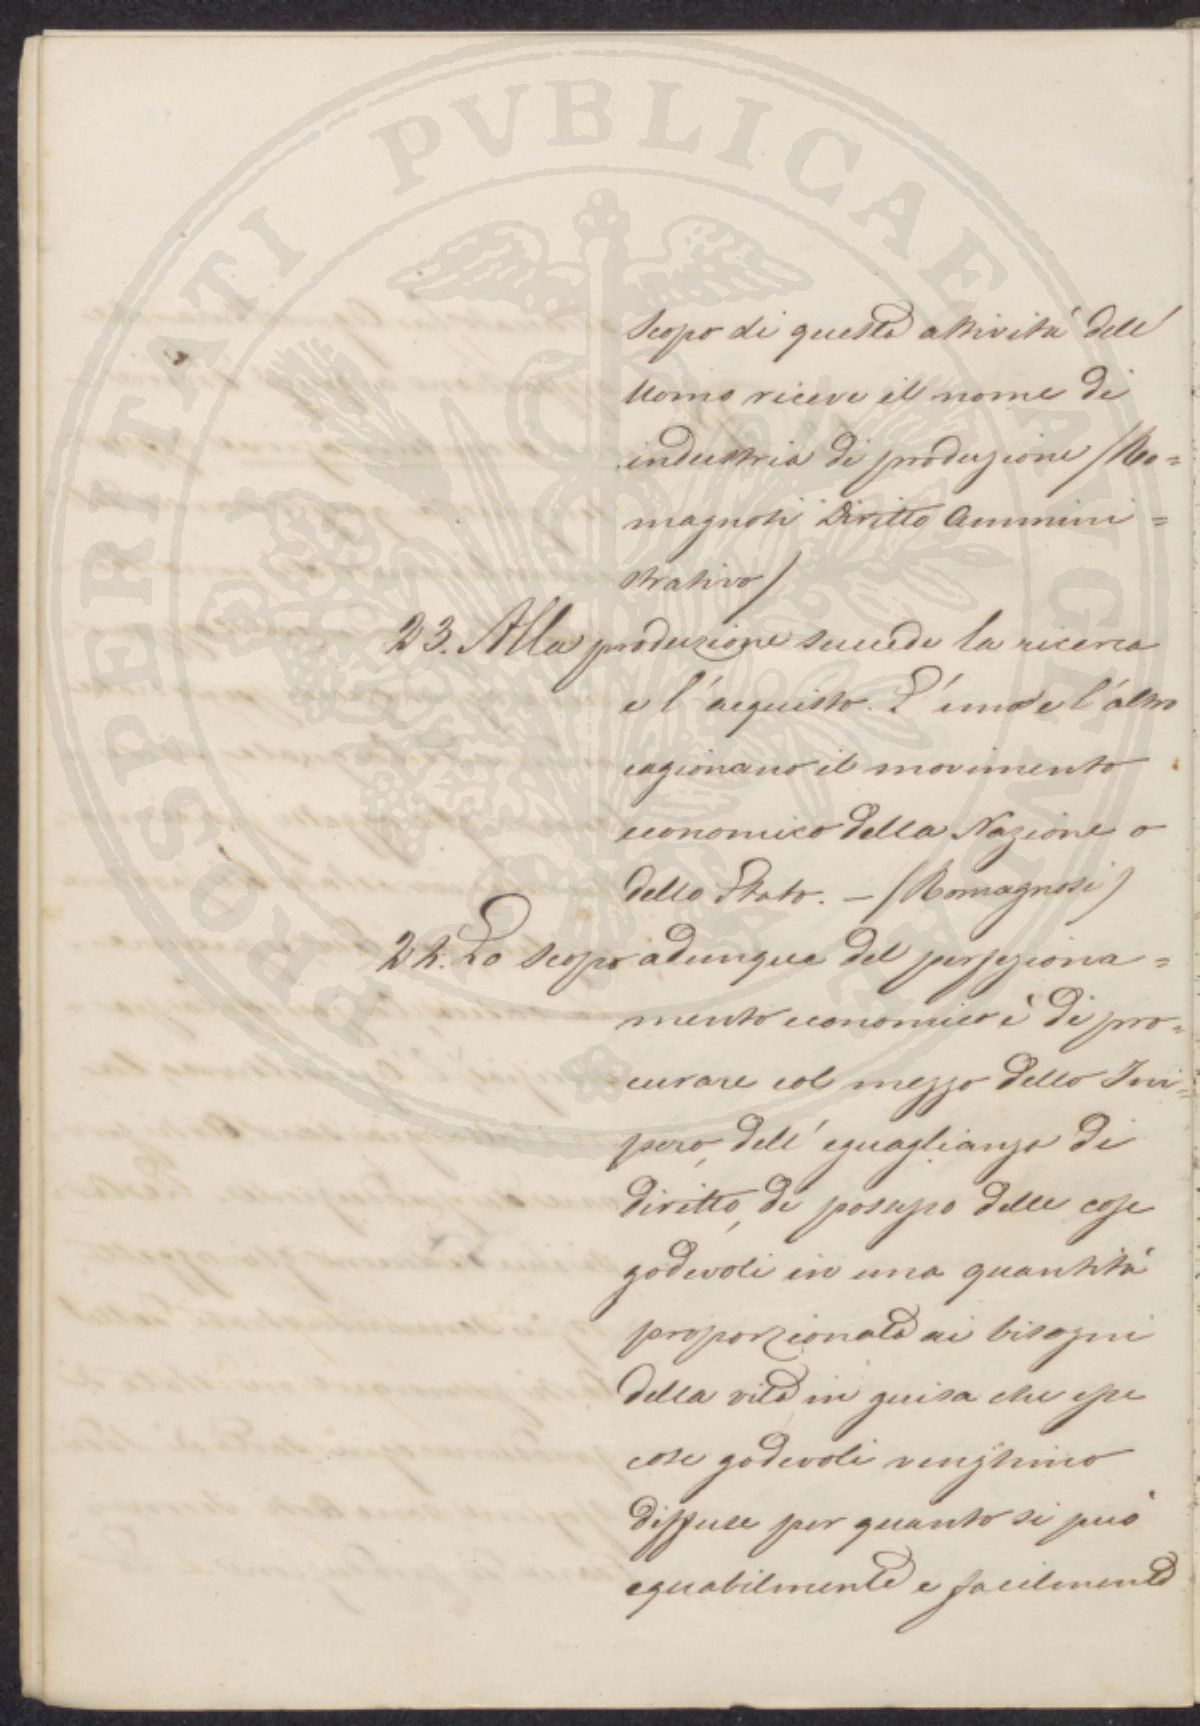 PROSPERITATI PVBLICAE AVGENDAE
Scopo di questa attività dell'
uomo riceve il nome di
industria di produzione (Ro=
magnosi Diritto Ammini=
strativo)
23. Alla produzione succede la ricerca
e l'acquisto. L'uno e l'altro
cagionano il movimento
economico della Nazione o
dello Stato. – (Romagnosi)
24. Lo scopo adunque del perfeziona=
mento economico è di pro=
curare col mezzo dello
dell'eguaglianza di
diritto, di possesso delle cose
godevoli in una quantità
proporzionata ai bisogni
della vita in guisa che esse
cose godevoli venghino
diffuse per quanto si può
equabilmente e facilmente